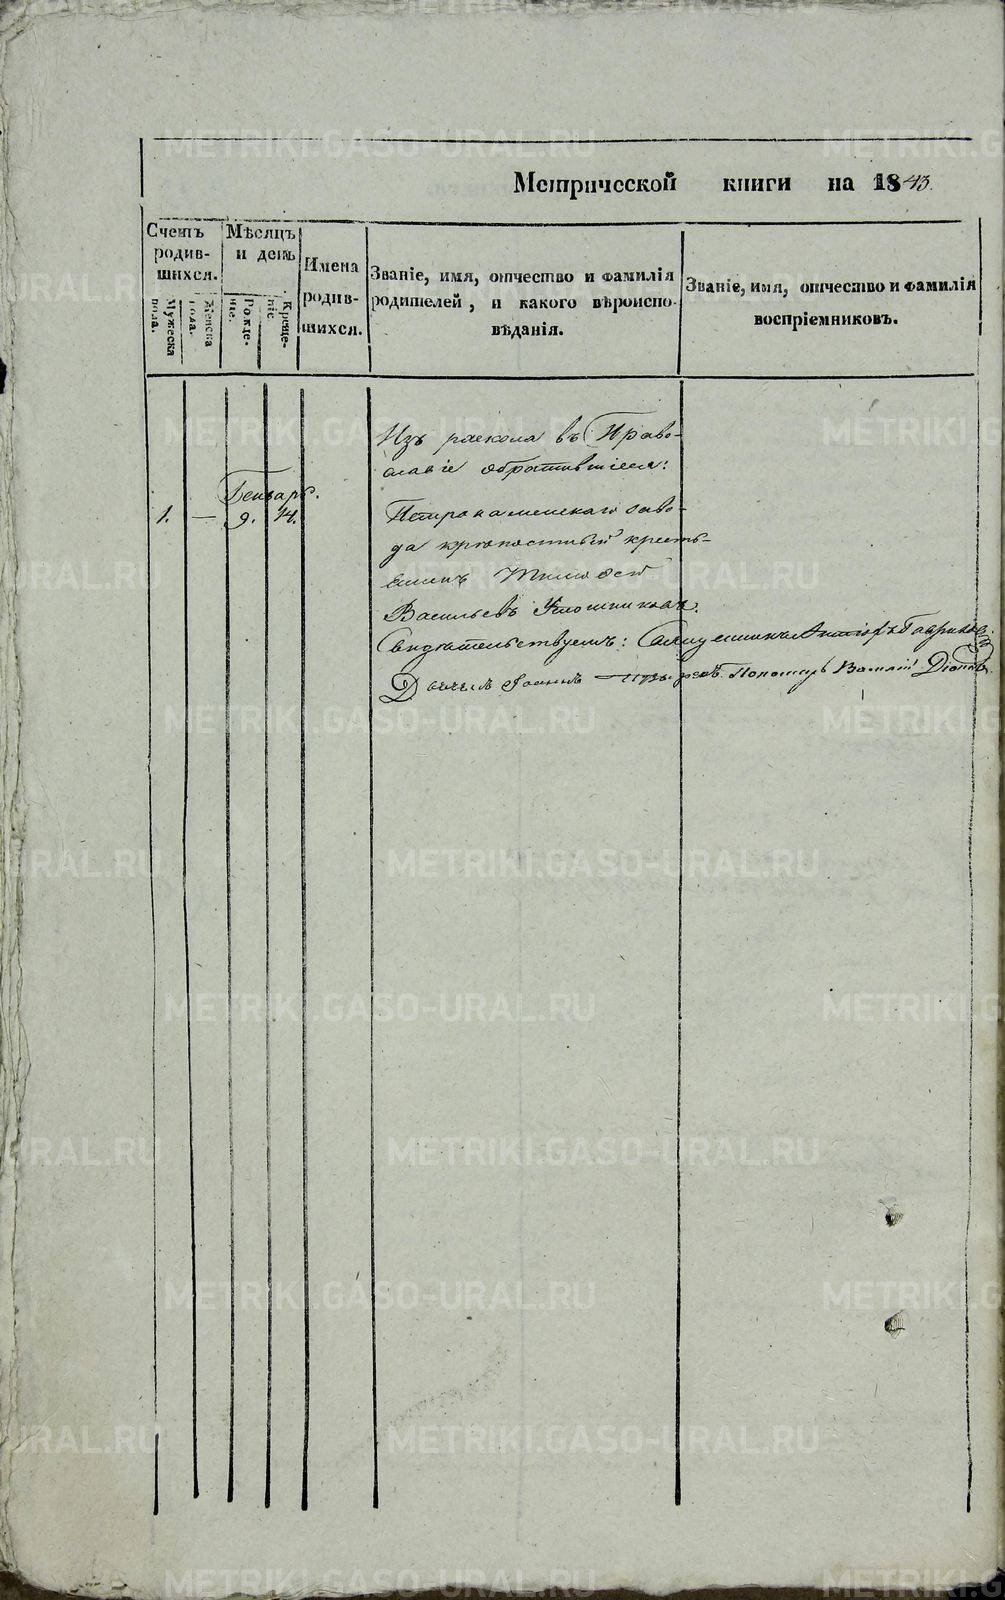 Метрической книги на 1843.
Счетъ родив-шихся.
Мужеска пола.
Женска пола.
Мѣсяцъ и день
Рожде-ніе.
Креще-ніе.
Имена родив-шихся.
Званіе, имя, отчество и фамилія
родителей, и какого вѣроиспо-
вѣданія.
Званіе, имя, отчество и фамилія
воспріемниковъ.
Изъ раскола въ Право-
славіе обратившіеся:
Генварь.
1. — 9. 14.
Петрокаменскаго заво-
да крѣпостный кресть-
янинъ Тимофей
Васильевъ
Свидѣтельствуемъ: Священникъ
Дьячекъ Іоаннъ Пономарь Василій
METRIKI.GASO-URAL.RU